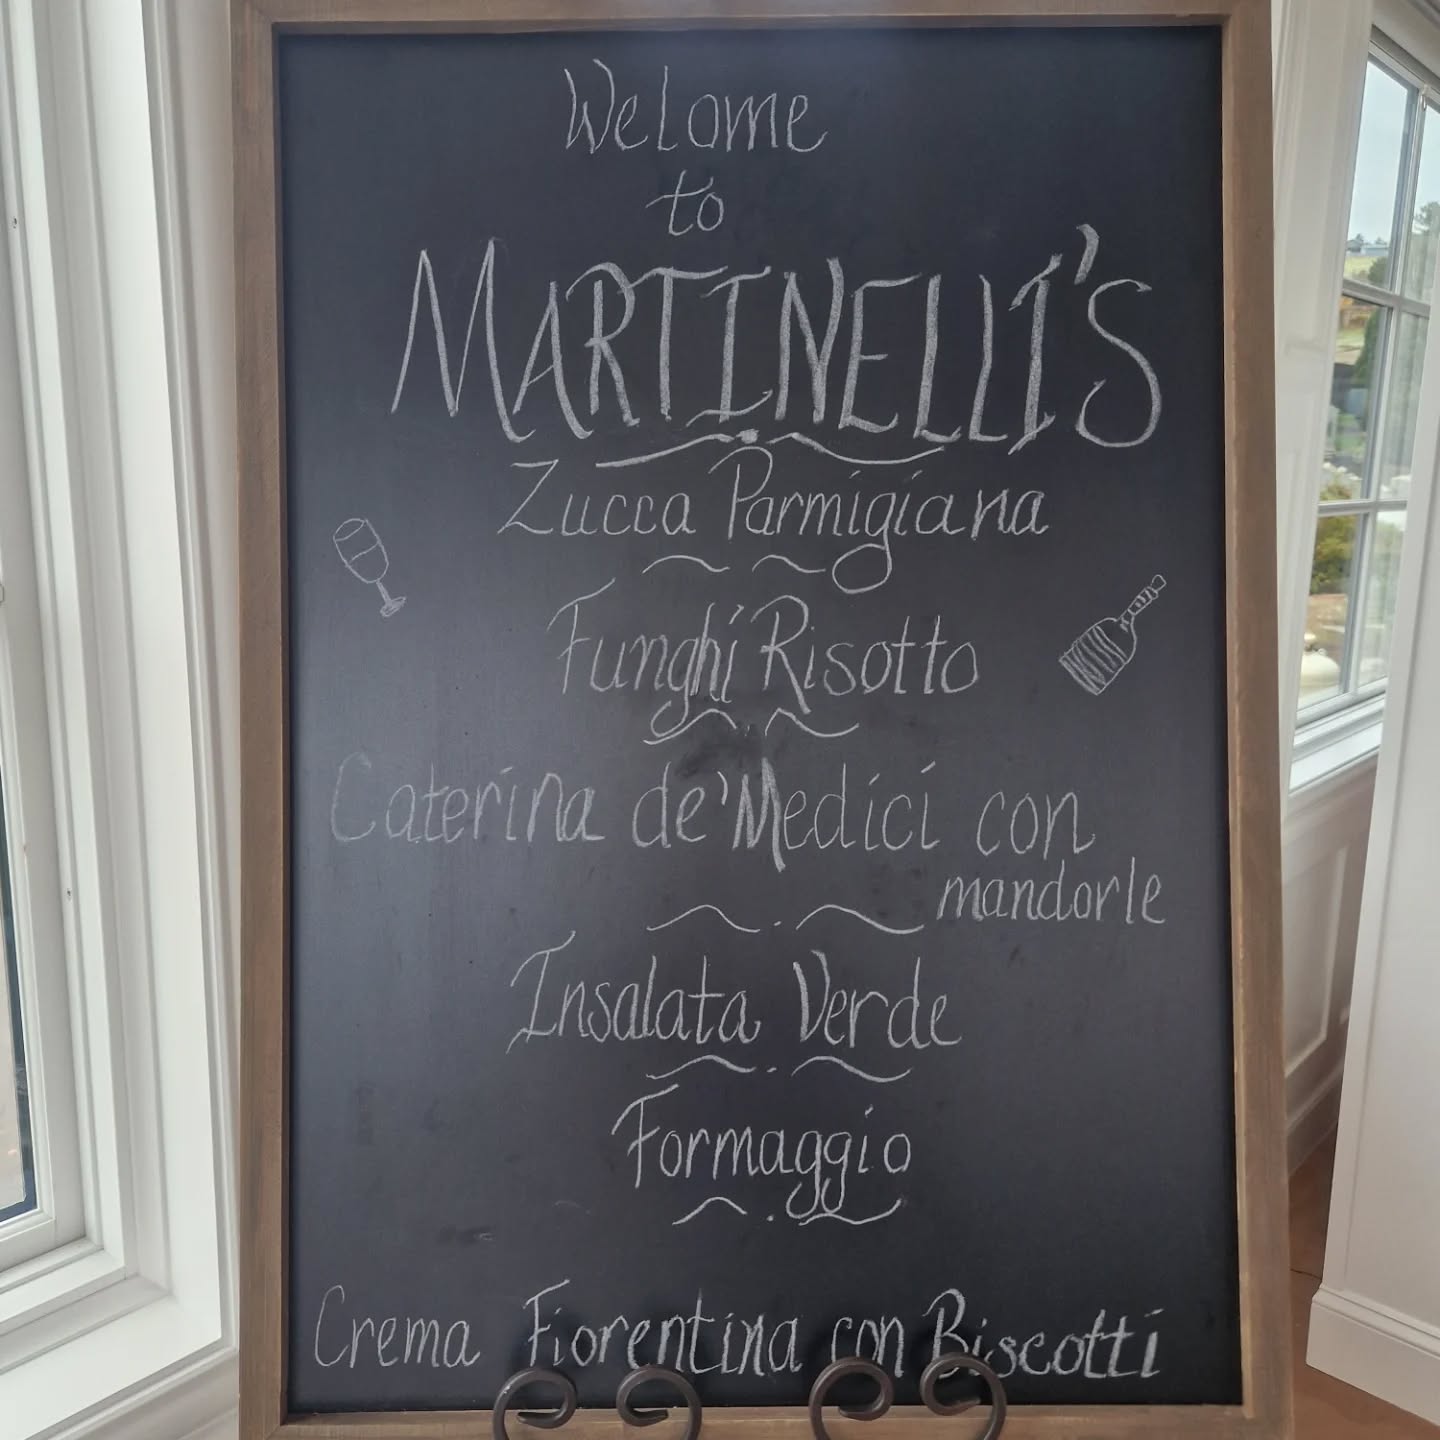 Welome
to
MARTINELLI'S
Zucca Parmigiana
Funghi Risotto
Caterina de'Medici con
mandorle
Insalata Verde
Formaggio
Crema Fiorentina con Biscotti